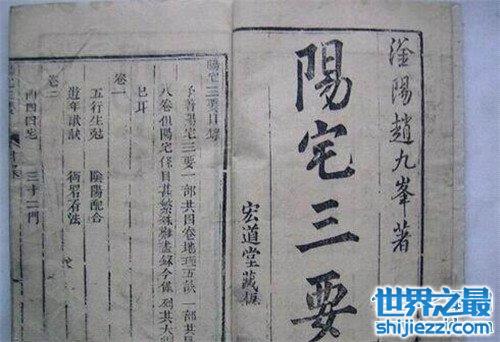 滏陽趙九峯著
陽宅三要
宏道堂藏板
陽宅三要目錄
予著陽宅三要一部共四卷地理五訣一部共
八卷但陽宅條目甚繁殊難盡錄今僅列其大
已耳
卷一
五行生尅 陰陽配合
遊年歌訣 看法
卷二
四宅 三十二門
世界之最
shijiezz.com